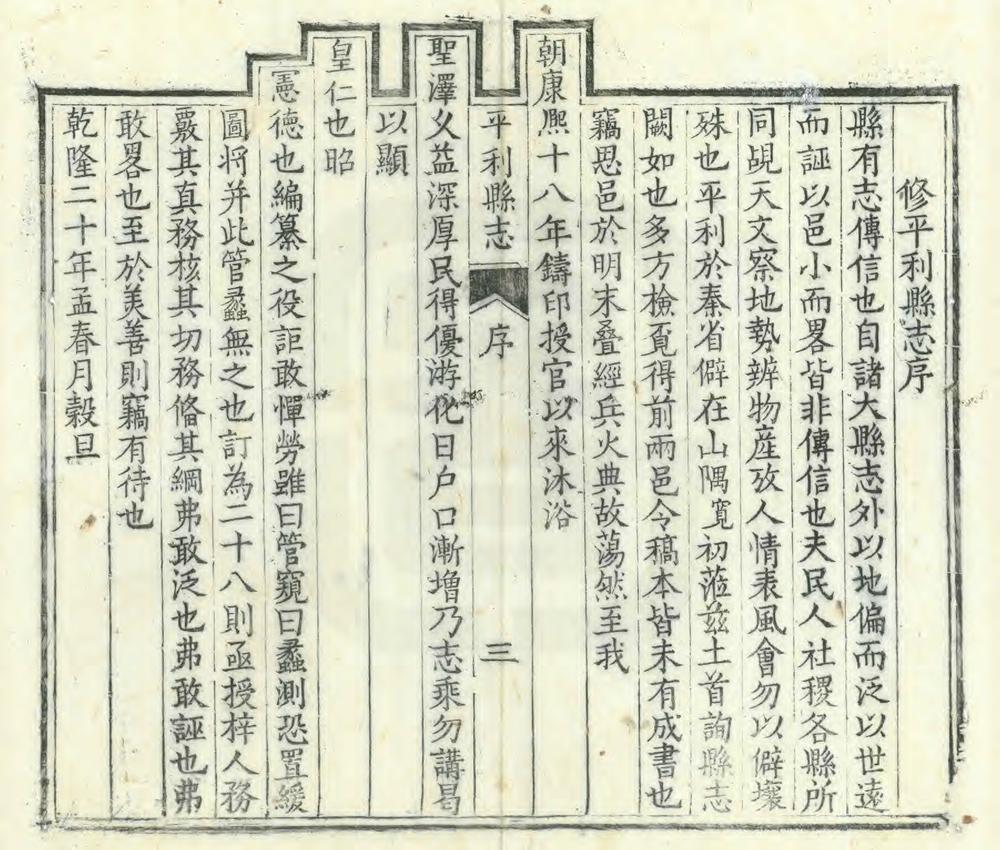 修平利縣志序
縣有志傳信也自諸大縣志外以地偏而泛以世遠
而誣以邑小而畧皆非傳信也夫民人社稷各縣所
同覘天文察地勢辨物産攷人情表風會勿以僻壤
殊也平利於秦省僻在山隅寬初蒞兹土首詢縣志
闕如也多方檢覔得前兩邑令稿本皆未有成書也
竊思邑於明末叠經兵火典故蕩然至我
朝康熙十八年鑄印授官以來沐浴
平利縣志 序 三
聖澤乆益深厚民得優游化日户口漸增乃志乘勿講曷
以顯
皇仁也昭
憲德也編纂之役詎敢憚勞雖曰管窺曰蠡測恐置緩
圖将并此管蠡無之也訂為二十八則亟授梓人務
覈其真務核其切務偹其綱弗敢泛也弗敢誣也弗
敢畧也至於美善則竊有待也
乾隆二十年孟春月穀旦